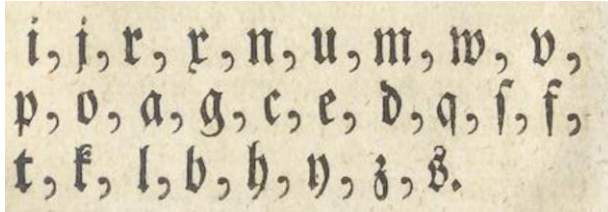 i, j, r, x, n, u, m, w, v,
p, o, a, g, c, e, d, q, ſ, f,
t, k, l, b, h, y, z, s.